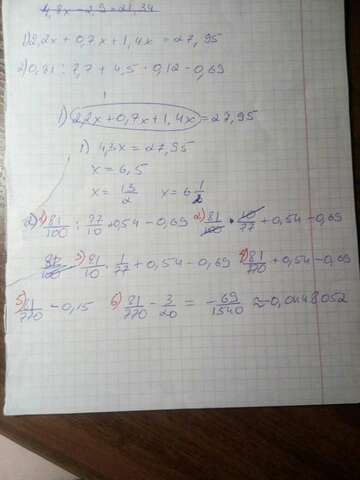 4,8x - 2,9 = 21,34
1) 2,2x + 0,7x + 1,4x = 27,95
2) 0,81 : 7,7 + 4,5 · 0,12 - 0,69
1) 2,2x + 0,7x + 1,4x = 27,95
1) 4,3x = 27,95
x = 6,5
x = 13/2 x = 6 1/2
2) 1) 81/100 : 77/10 + 0,54 - 0,69 2) 81/100 · 10/77 + 0,54 - 0,69
81/100 3) 81/10 · 1/77 + 0,54 - 0,69 4) 81/770 + 0,54 - 0,69
5) 81/770 - 0,15 6) 81/770 - 3/20 = - 69/1540 ≈ -0,0448052